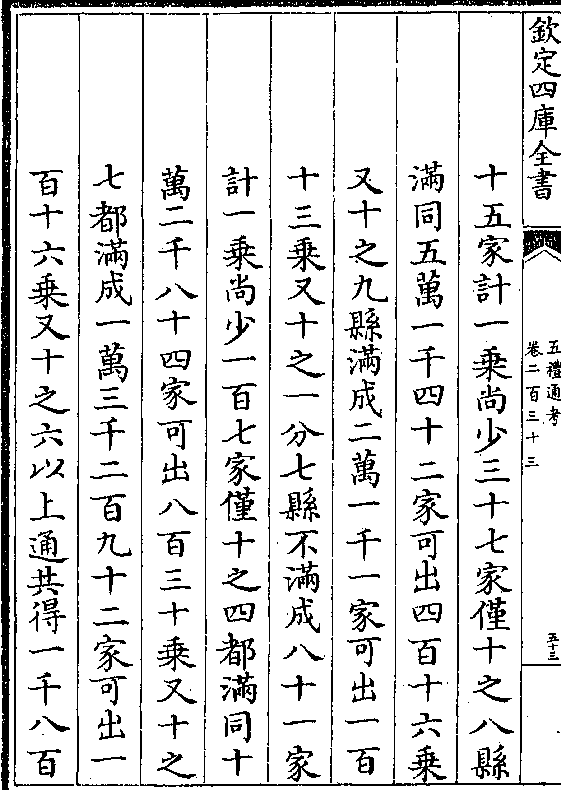 欽定四庫全書
五禮通考
卷二百三十三
五十三
十五家計一乘尚少三十七家僅十之八縣
滿同五萬一千四十二家可出四百十六乘
又十之九縣滿成二萬一千一家可出一百
十三乘又十之一分七縣不滿成八十一家
計一乘尚少一百七家僅十之四都滿同十
萬二千八十四家可出八百三十乘又十之
七都滿成一萬三千二百九十二家可出一
百十六乘又十之六以上通共得一千八百